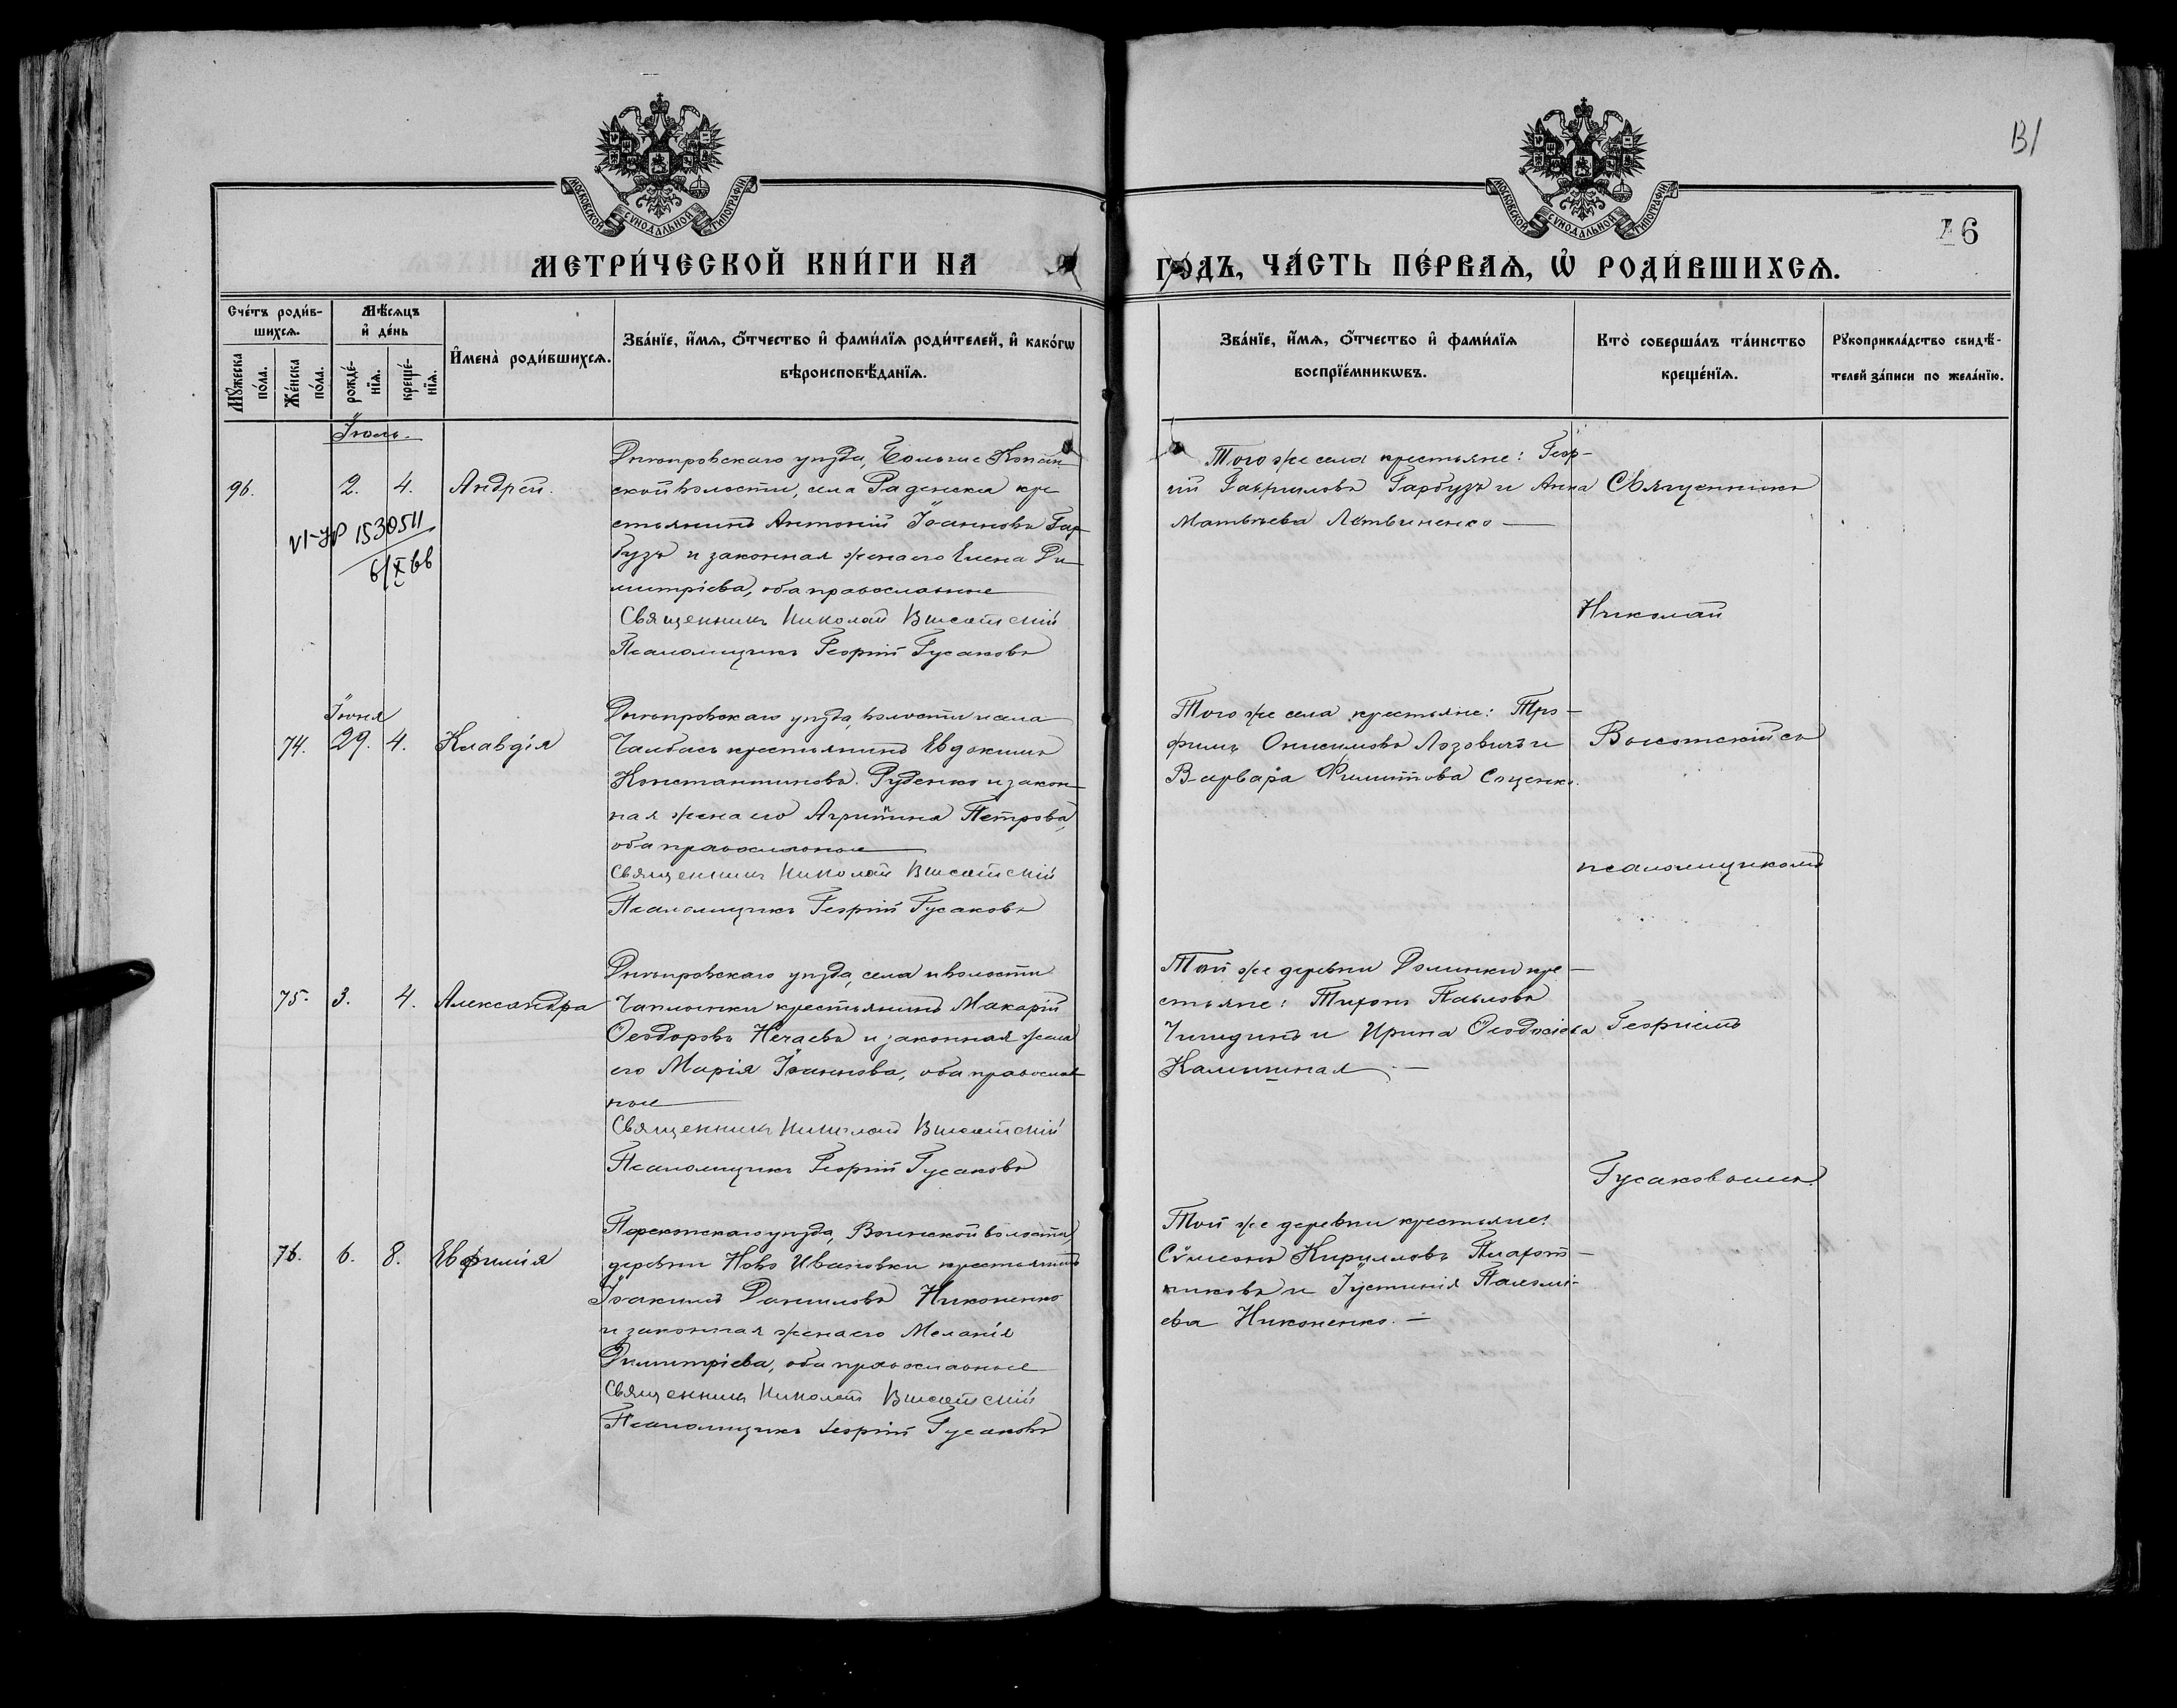 131
МОСКОВСКОЙ СѴНОДАЛЬНОЙ ТИПОГРАФІИ
МОСКОВСКОЙ СѴНОДАЛЬНОЙ ТИПОГРАФІИ
46
МЕТРИ́ЧЕСКОЙ КНИ́ГИ НА
ГО́ДЪ, ЧА́СТЬ ПЕ́РВАѦ, Ѡ҆ РОДИ́ВШИХСѦ.
Сче́тъ роди́в-
шихсѧ.
Мꙋ́жеска
по́ла.
Же́нска
по́ла.
Мѣ́сѧцъ
и҆ де́нь
рожде́-
нїѧ.
креще́-
нїѧ.
И҆мена̀ роди́вшихсѧ.
Зва́нїе, и҆́мѧ, ѻ҆́тчество и҆ фами́лїѧ роди́телей, и҆ како́гѡ
вѣроисповѣ́данїѧ.
Зва́нїе, и҆́мѧ, ѻ҆́тчество и҆ фами́лїѧ
воспрїе́мникѡвъ.
Кто̀ соверша́лъ та́инство
креще́нїѧ.
Рꙋкоприкла́дство свидѣ́-
телей за́писи по жела́нїю.
Іюль.
96.
2.
4.
Андрей.
VI-УР 1530511
6/X 66
Днѣпровскаго уѣзда, Больше Копан-
ской волости, села Раденска кре
стьянинъ Антоній Іоанновъ Гар
бузъ и законная жена его Елена Ди
митріева, оба православные
Священникъ Николай Высотскій
Псаломщикъ Георгій Гусаковъ
Того же села крестьяне: Геор-
гій Гавриловъ Гарбузъ и Анна
Матвѣева Литвиненко
Священникъ
Николай
Іюня
74.
29.
4.
Клавдія
Днѣпровскаго уѣзда, волости и села
Чалбасъ крестьянинъ Евдокимъ
Константиновъ Руденко и закон
ная жена его Агрипина Петрова,
оба православные
Священникъ Николай Высотскій
Псаломщикъ Георгій Гусаковъ
Того же села крестьяне: Тро-
фимъ Онисимовъ Лозовичъ и
Варвара Филиппова Сященко.
Высотскій съ
псаломщикомъ
75.
3.
4.
Александра
Днѣпровскаго уѣзда, села и волости
Чаплинки крестьянинъ Макарій
Ѳеодоровъ Нечаевъ и законная жена
его Марія Іоаннова, оба православ
ные
Священникъ Николай Высотскій
Псаломщикъ Георгій Гусаковъ
Той же деревни Долинки кре-
стьяне: Тихонъ Павловъ
и Ирина Ѳеодосіева
Георгіемъ
Гусаковымъ
76.
6.
8.
Евфимія
Перекопскаго уѣзда, Воинской волости,
деревни Ново Ивановки крестьянинъ
Іоакимъ Даниловъ Никоненко
и законная жена его Меланія
Димитріева, оба православные
Священникъ Николай Высотскій
Псаломщикъ Георгій Гусаковъ
Той же деревни крестьяне:
Сѵмеонъ Кирилловъ Плахот-
никовъ и Іустинія
ева Никоненко.